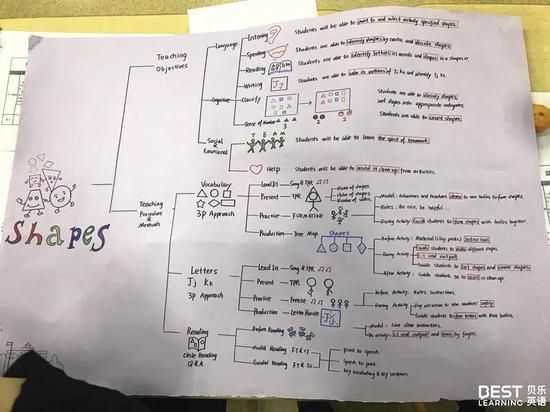 Teaching Objectives
Language
Listening
Students will be able to point to and select verbally specified shapes.
Speaking
Students are able to identify shapes by name and describe shapes.
Reading
Students are able to identify letters in words and shapes in a
Writing
Jj
Students are able to color in pattern of Jj, Kk and identify Jj, Kk.
Cognitive
Classify
Students are able to identify shapes,
sort shapes into appropriate categories.
Sense of Number
3
2
2
Students are able to count shapes.
Social & Emotional
T E A M
Students will be able to learn the spirit of teamwork.
Help
Students will be able to assist in clean up from activities.
Shapes
Teaching Procedure & Methods
Vocabulary
3P Approach
Lead In
Song & TPR
Present
TPR
Name of shapes
Color of shapes
Number of sides
Practise
FORMATION
Model: Educators and teachers demo to use bodies to form shapes.
Rules: Be nice, be helpful...
During Activity: Guide students to form shapes with bodies together.
Production
Tree Map
Shapes
Before Activity: Material (clay, poster) Instructions
During Activity
Guide students to make different shapes.
1:1 oral output
Guide students to sort shapes and count shapes
After Activity: Guide students to assist in clean up.
Letters
Jj Kk
3P Approach
Lead In
Song & TPR
Present
TPR
Practise
Freeze
Before Activity: Rules, Instructions
During Activity
Pay attention to the students' safety
Guide students to form letters with their bodies.
Production
Letter House
Jj
Model: Give clear instructions.
In activity: 1:1 oral output and trace by finger.
Reading
Circle Reading
Q&A
Before Reading
Model Reading
F.T & S.T
Point to speech.
Guided Reading
F.T & S.S
Speech to point.
Key vocabulary & Key sentences.
BEST LEARNING
贝乐英语